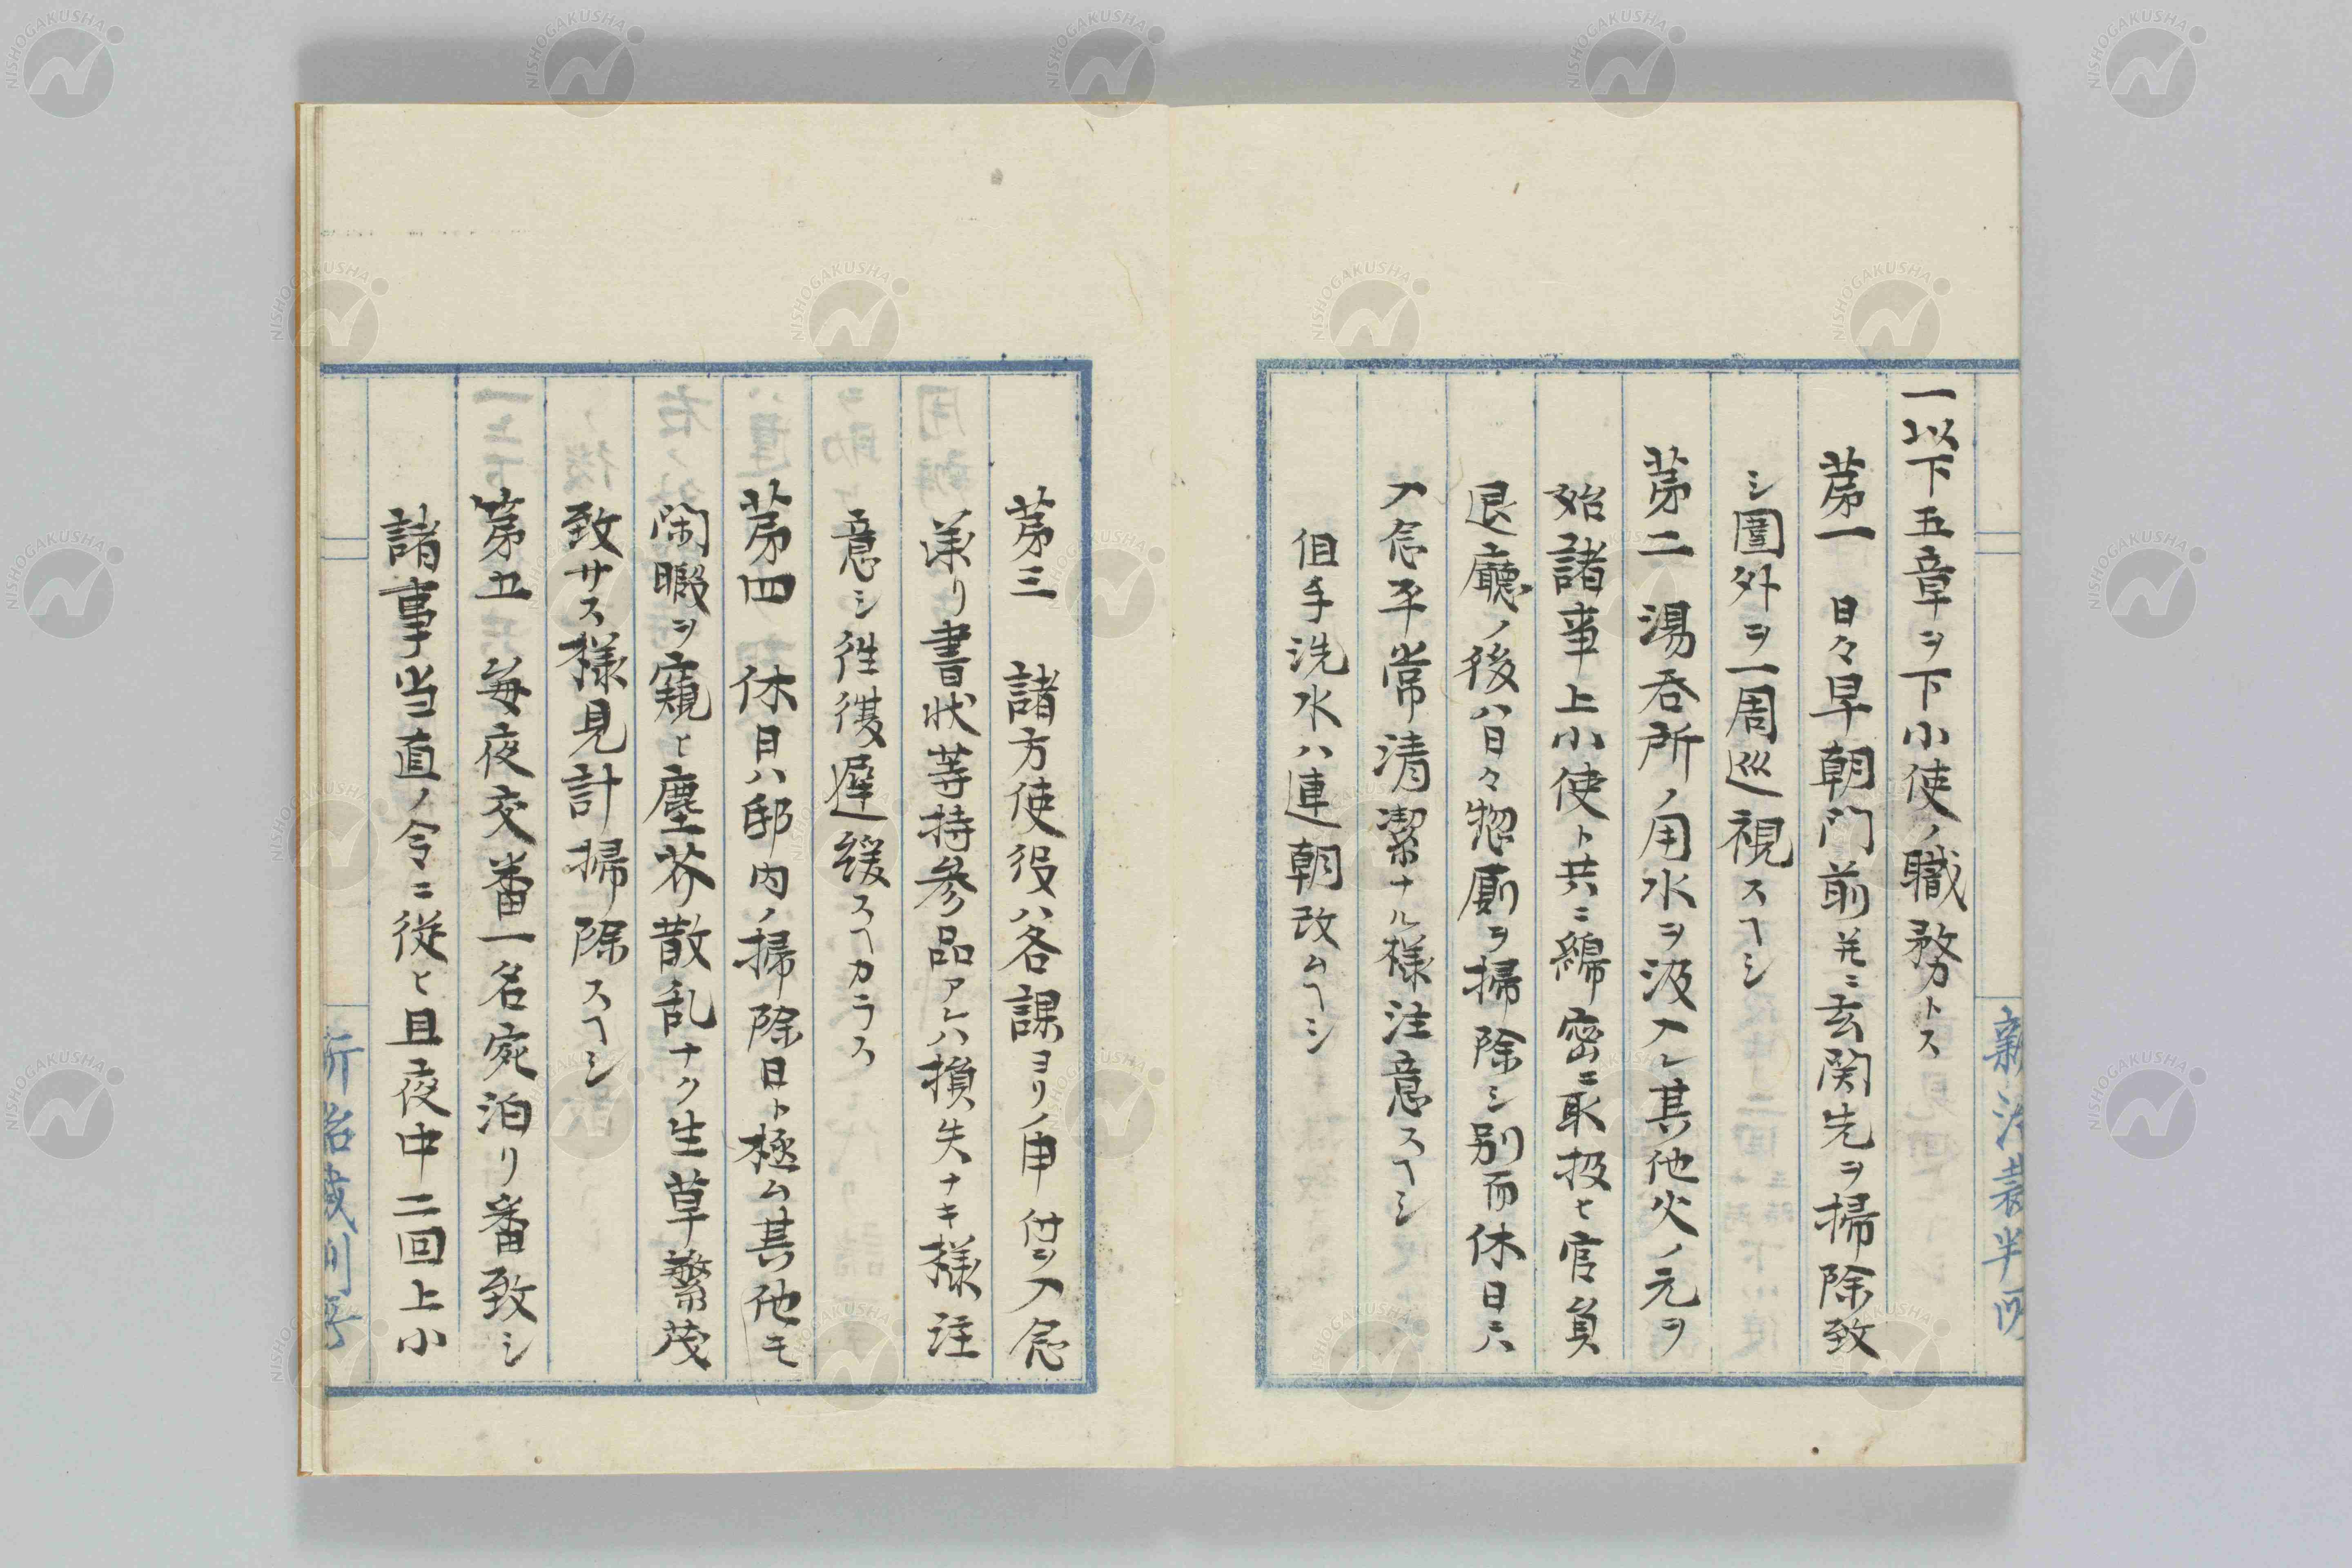 一以下五章ヲ下小使ノ職務トス
第一 日々早朝門前并ニ玄関先ヲ掃除致
シ圍外ヲ一周巡視スヘシ
第二 湯呑所ノ用水ヲ汲入レ其他火ノ元ヲ
始諸事上小使ト共ニ綿密ニ取扱ヒ官員
退廳ノ後ハ日々惣廁ヲ掃除シ別而休日ハ
入念平常清潔ナル様注意スヘシ
但手洗水ハ連朝改ムヘシ
第三 諸方使役ハ各課ヨリノ申付ヲ入念
承リ書状等持参品アレハ損失ナキ様注
意シ往復遅緩スヘカラス
第四 休日ハ邸内ノ掃除日ト極ム其他モ
閑暇ヲ窺ヒ塵芥散乱ナク生草繁茂
致サス様見計掃除スヘシ
第五 毎夜交番一名宛泊リ番致シ
諸事当直ノ令ニ従ヒ且夜中二回上小
NISHOGAKUSHA